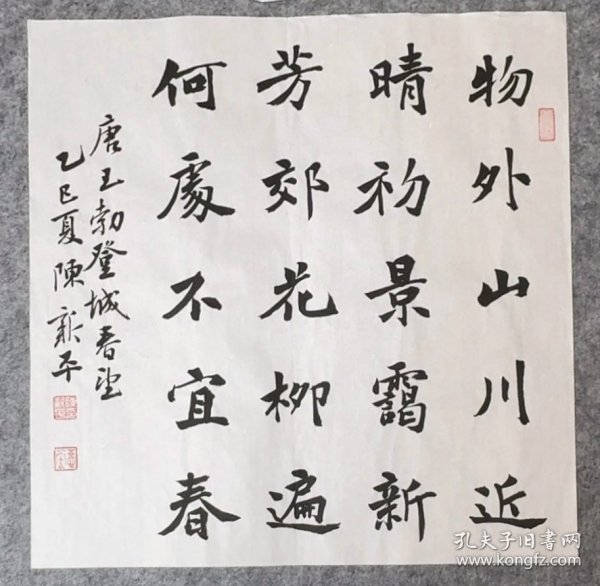 物外山川近
晴初景靄新
芳郊花柳遍
何處不宜春
唐王勃登城春望
乙巳夏陳新平
孔夫子旧书网
www.kongfz.com